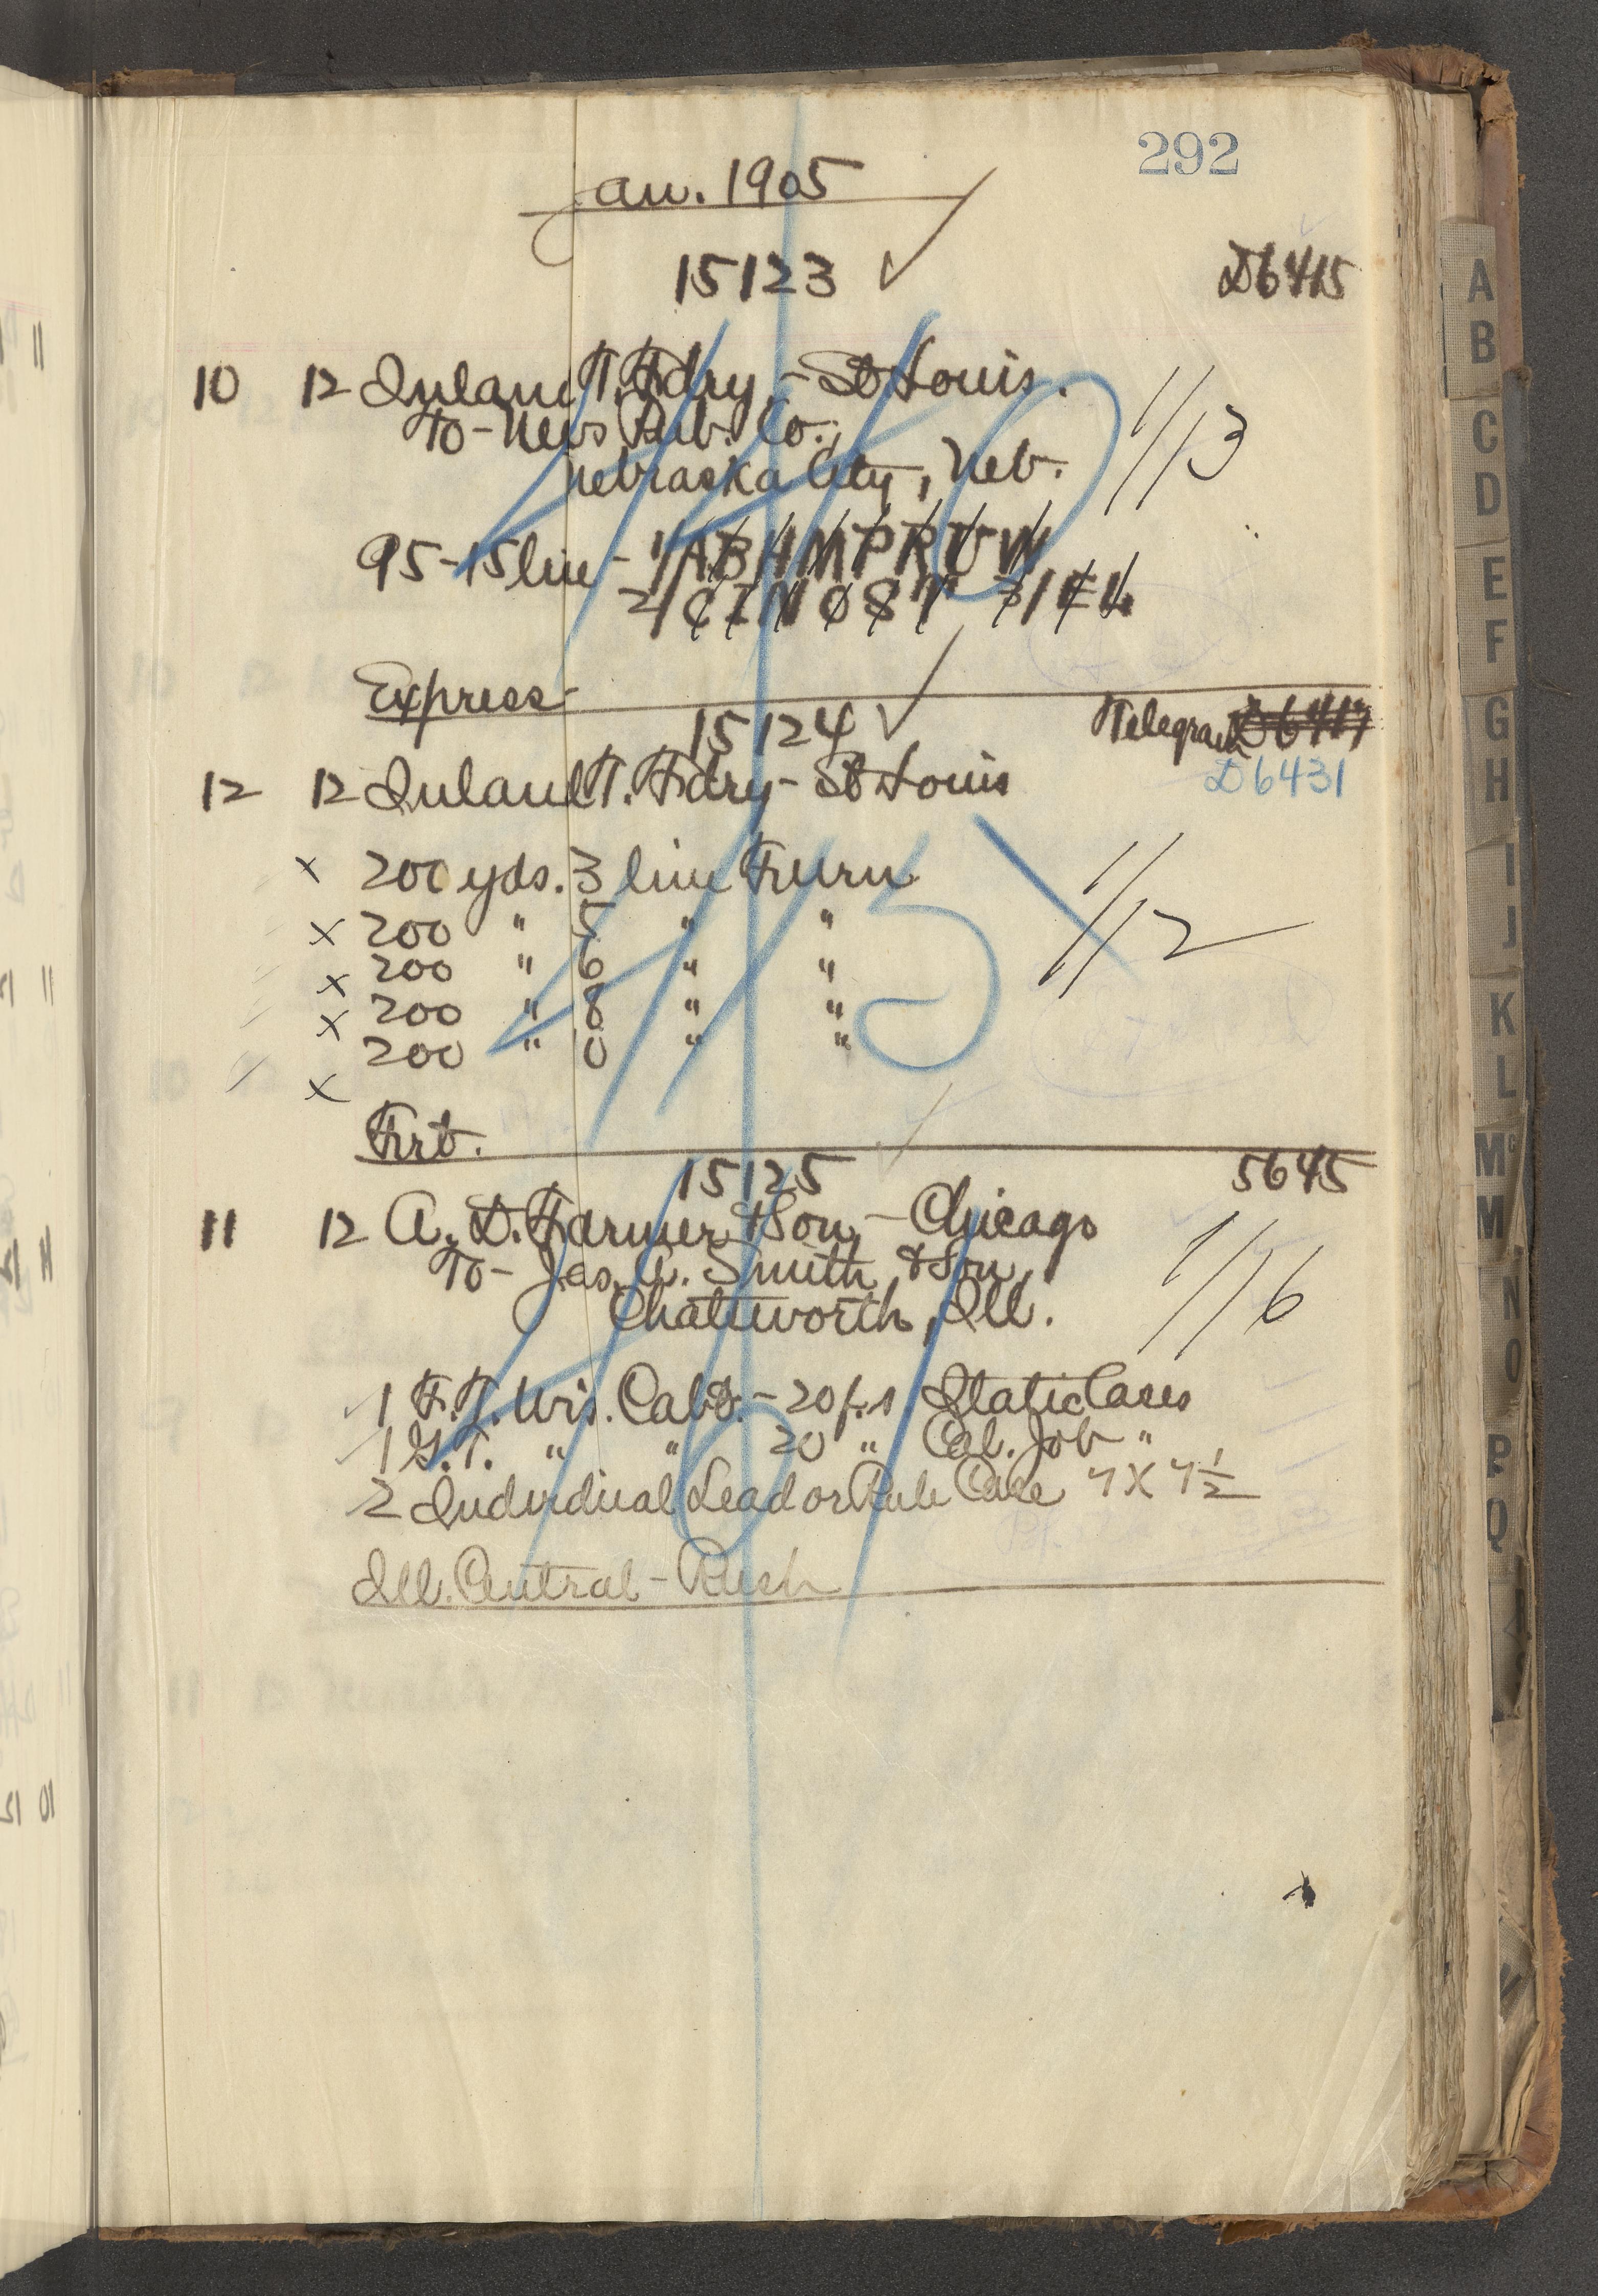 292
Jan. 1905
15123 ✓ D6415
10 12 Inland T. Fdry - St Louis.
To - News Pub. Co.,
Nebraska City, Neb. 1/13
95 - 15 line - 1/A B H M P R U W
2/C I N O S T 3/E L
Express
15124 ✓ Telegram D6417
12 12 Inland T. Fdry - St Louis D6431
x 200 yds. 3 line Furn 1/12
x 200 " 5 " "
x 200 " 6 " "
x 200 " 8 " "
x 200 " 10 " "
Frt.
15125 5645
11 12 A. D. Farmer & Son - Chicago
To - Jas. A. Smith & Son,
Chatsworth, Ill. 1/16
1 F.T. Wis. Cabt. - 20 f.s Italic Cases
1 G.T. " " 20 " Cal. Job "
2 Individual Lead or Rule Case 7 x 7 1/2
Ill. Central - Rush
A
B
C
D
E
F
G
H
I
J
K
L
Mc
M
N
O
P
Q